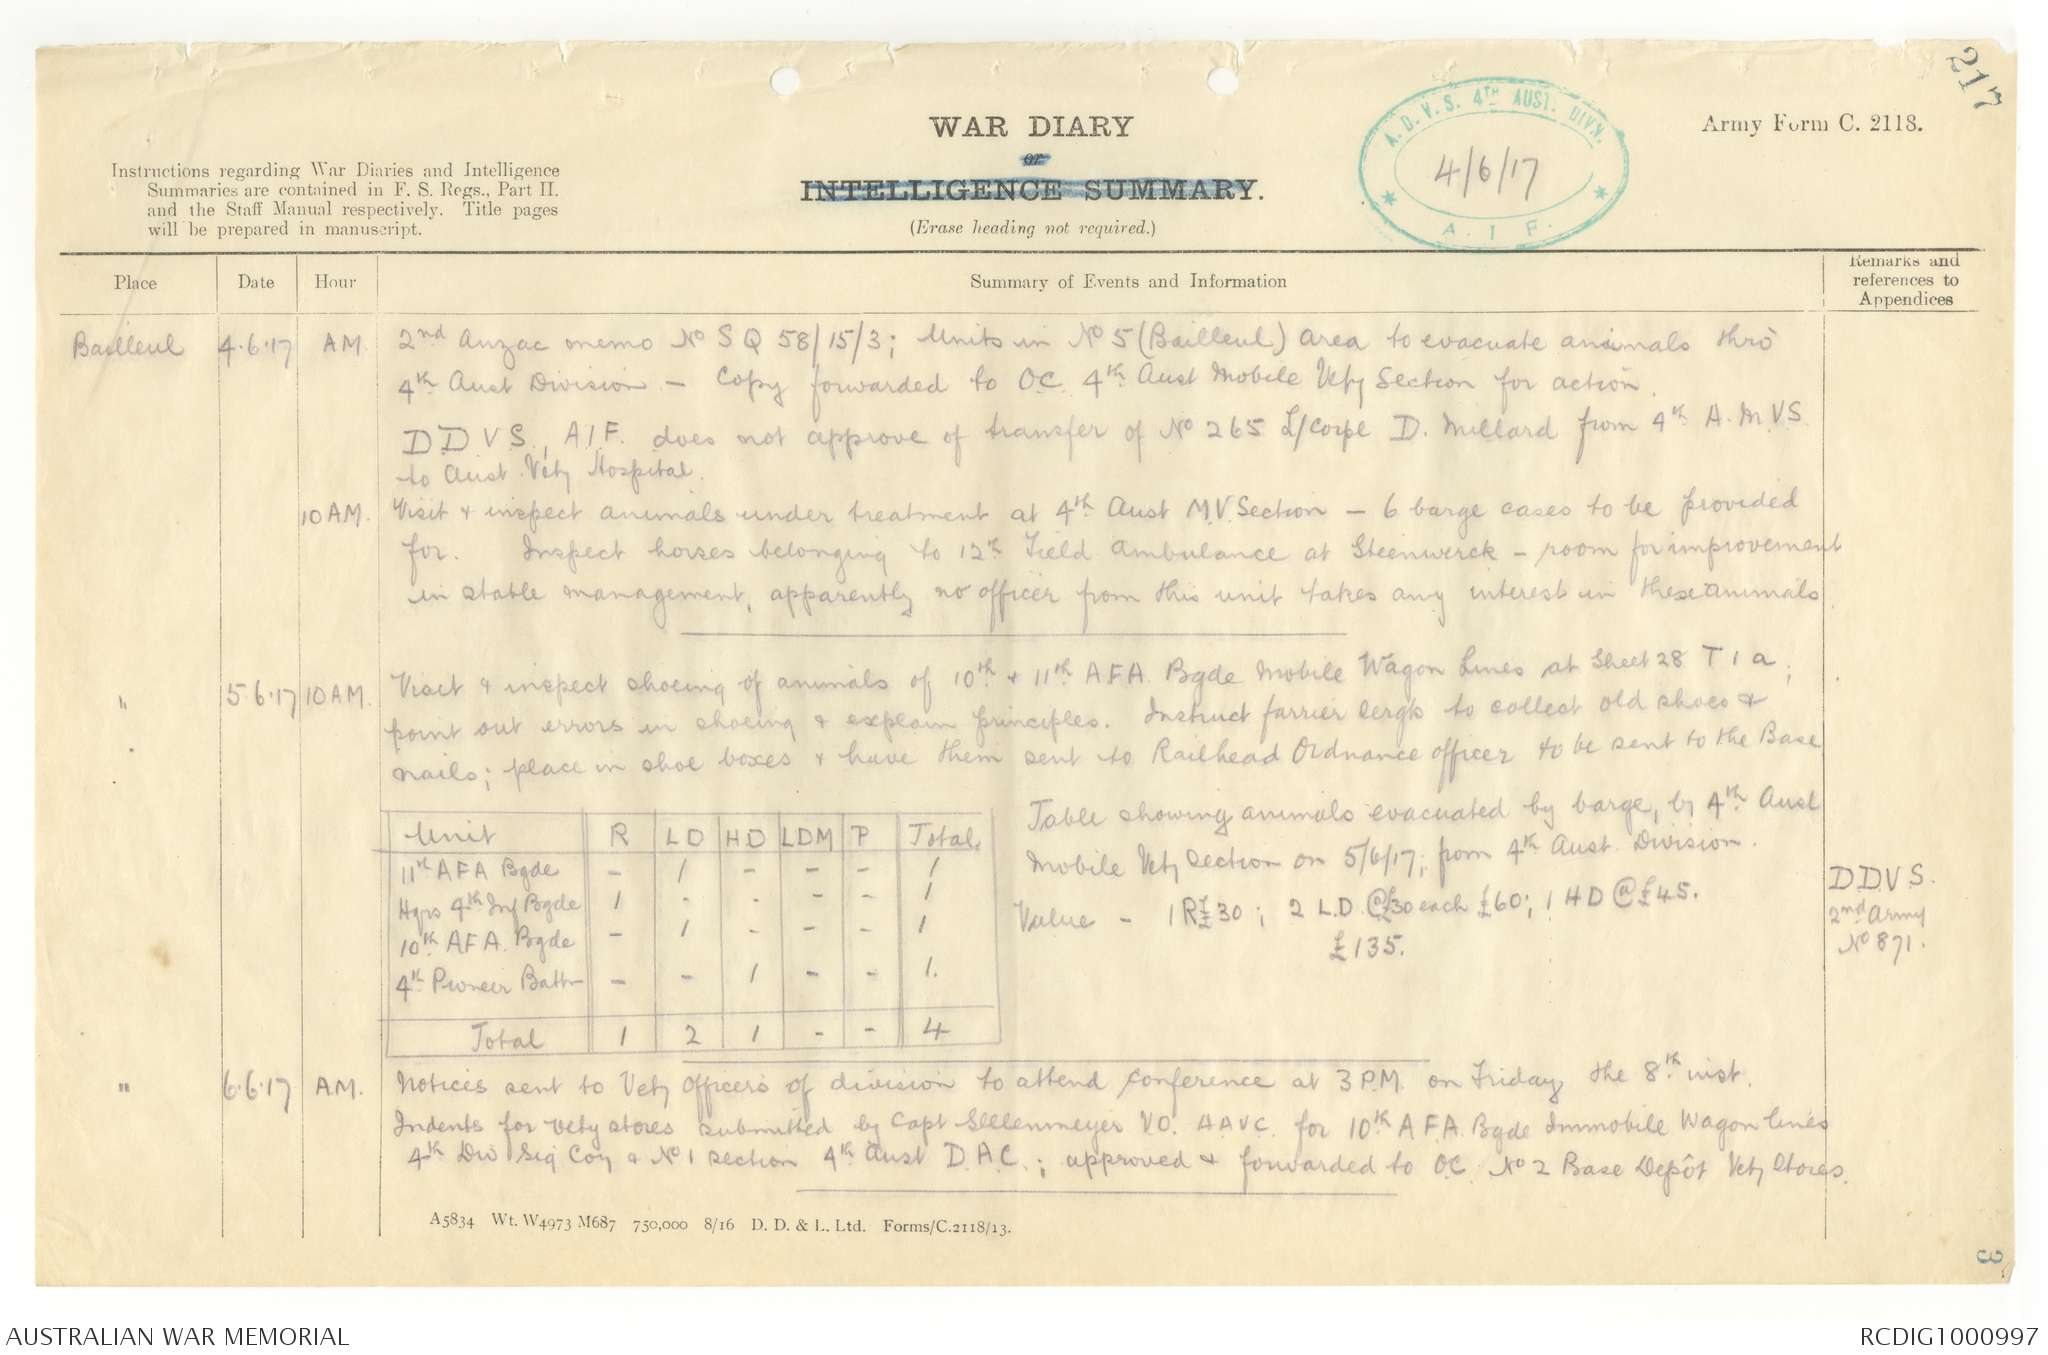 217
WAR DIARY
or
INTELLIGENCE SUMMARY.
(Erase heading not required.)
Army Form C. 2118.
Instructions regarding War Diaries and Intelligence
Summaries are contained in F. S. Regs., Part II.
and the Staff Manual respectively. Title pages
will be prepared in manuscript.
A.D.V.S. 4TH AUST. DIVN.
4/6/17
A.I.F.
Place Date Hour Summary of Events and Information Remarks and references to Appendices
Bailleul 4.6.17 AM. 2nd Anzac memo No S Q 58/15/3; Units in No 5 (Bailleul) area to evacuate animals thro
4th Aust Division. — Copy forwarded to OC. 4th Aust Mobile Vety Section for action.
D D V S, A.I.F. does not approve of transfer of No 265 L/Corpl D. Millard from 4th A.M.V.S.
to Aust. Vety Hospital.
10 AM. Visit & inspect animals under treatment at 4th Aust M.V. Section — 6 barge cases to be provided
for. Inspect horses belonging to 12th Field Ambulance at Steenwerck — room for improvement
in stable management, apparently no officer from this unit takes any interest in these animals
" 5.6.17 10 AM. Visit & inspect shoeing of animals of 10th & 11th A.F.A. Bgde Mobile Wagon Lines at Sheet 28 T 1 a;
point out errors in shoeing & explain principles. Instruct farrier sergts to collect old shoes &
nails; place in shoe boxes & have them sent to Railhead Ordnance officer to be sent to the Base
Unit R LD HD LDM P Total.
11th AFA Bgde - 1 - - - 1
Hqrs 4th Inf Bgde 1 - - - - 1
10th AFA. Bgde - 1 - - - 1
4th Pioneer Battn - - 1 - - 1.
Total 1 2 1 - - 4
Table showing animals evacuated by barge, by 4th Aust
Mobile Vety Section on 5/6/17, from 4th Aust. Division.
Value — 1 R £30; 2 L.D. @ £30 each £60; 1 HD @ £45.
£135.
DDVS.
2nd Army
No 871.
" 6.6.17 AM. Notices sent to Vety officers of division to attend conference at 3 P.M. on Friday the 8th inst.
Indents for vety stores submitted by Capt V.O. AAVC. for 10th A.F.A. Bgde Immobile Wagon lines
4th Div Sig Coy & No 1 section 4th Aust D.A.C.; approved & forwarded to OC. No 2 Base Depôt Vety Stores.
A5834 Wt. W4973 M687 750,000 8/16 D. D. & L. Ltd. Forms/C.2118/13.
3
AUSTRALIAN WAR MEMORIAL
RCDIG1000997